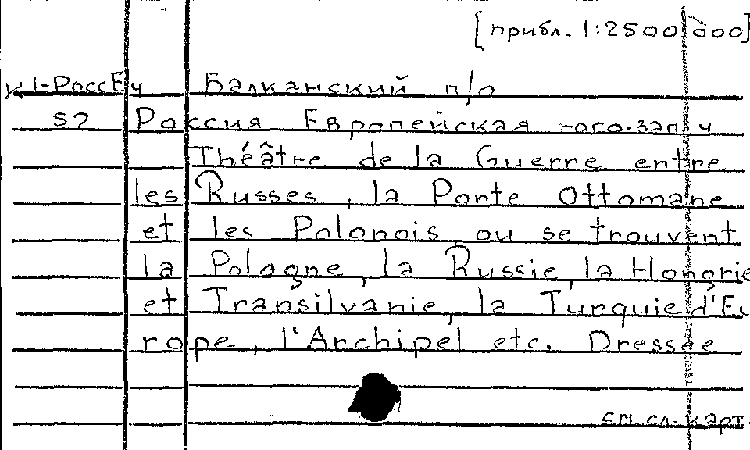 [прибл. 1:2500 000]
К 1-РоссЕч Балканский п/о
52 Россия Европейская юго.зап ч
Théâtre de la Guerre entre
les Russes, la Porte Ottomane
et les Polonois ou se trouvent
la Pologne, la Russie, la Hongrie
et Transilvanie, la Turquie d'Eu
rope, l'Archipel etc. Dressée
см. сл. карт.